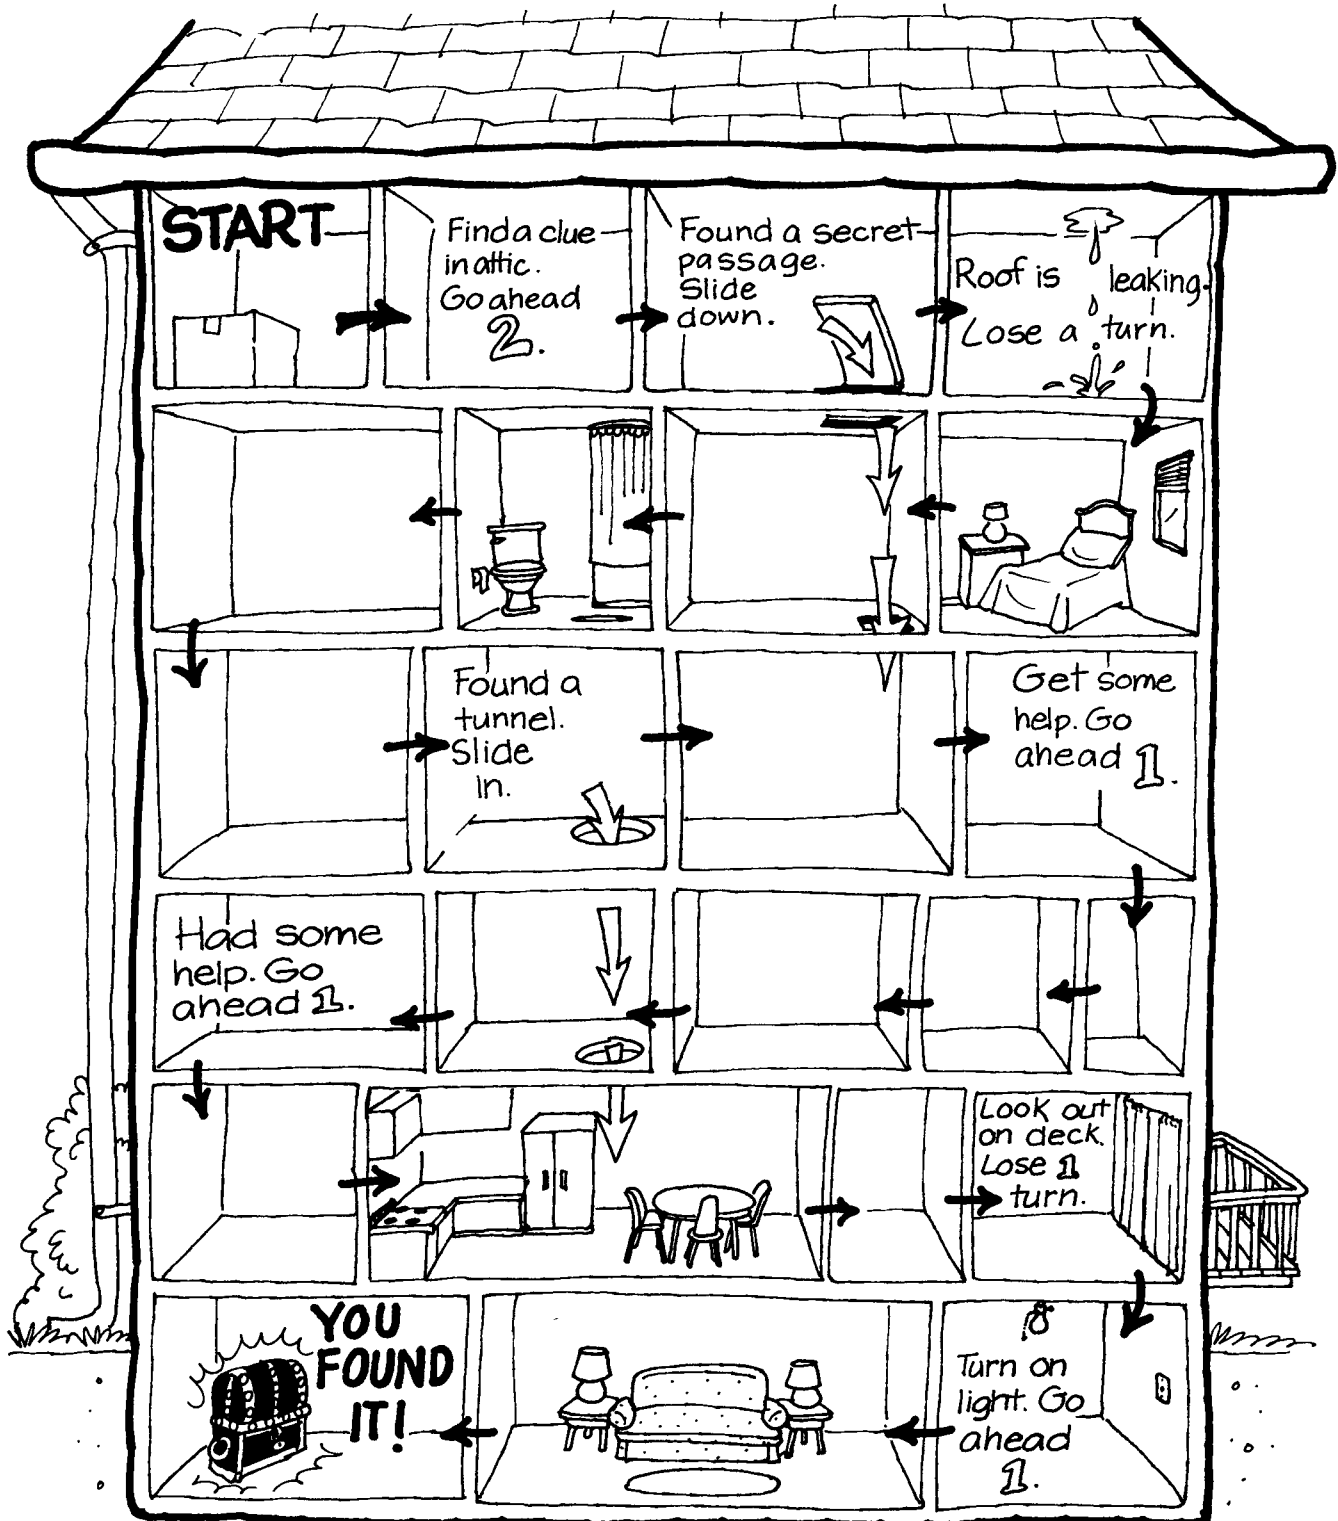 START
Find a clue
in attic.
Go ahead
2.
Found a secret
passage.
Slide
down.
Roof is leaking.
Lose a turn.
Found a
tunnel.
Slide
in.
Get some
help. Go
ahead 1.
Had some
help. Go
ahead 1.
Look out
on deck.
Lose 1
turn.
YOU
FOUND
IT!
Turn on
light. Go
ahead
1.